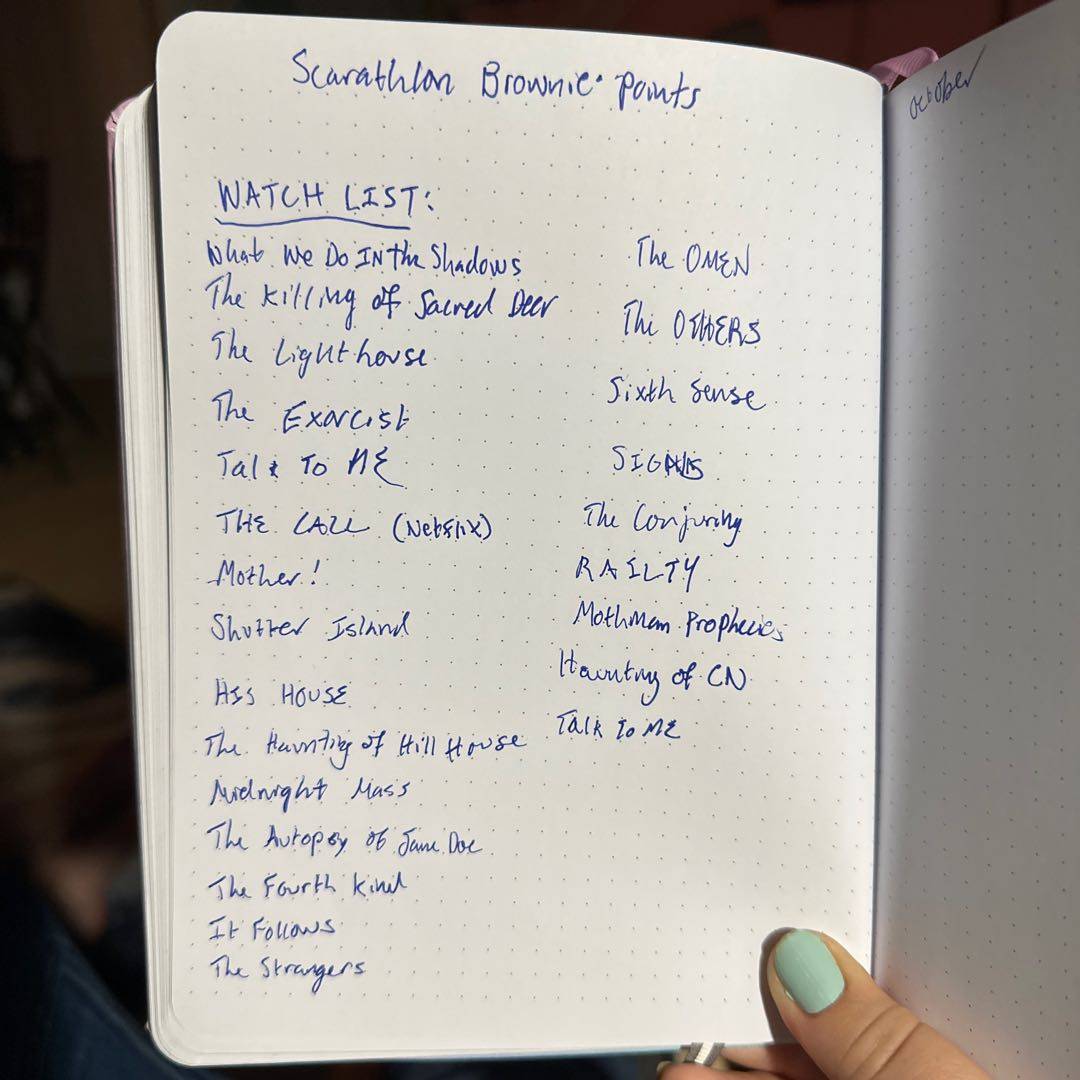 Scarathlon Brownie Points
October
WATCH LIST:
What We Do IN the Shadows
The Killing of Sacred Deer
The Lighthouse
The Exorcist
Talk To ME
THE CALL (Netflix)
Mother!
Shutter Island
HIS HOUSE
The Haunting of Hill House
Midnight Mass
The Autopsy of Jane Doe
The Fourth Kind
It Follows
The Strangers
The OMEN
The OTHERS
Sixth Sense
SIGNS
The Conjuring
RAILTY
Mothman Prophecies
Haunting of CN
Talk to ME